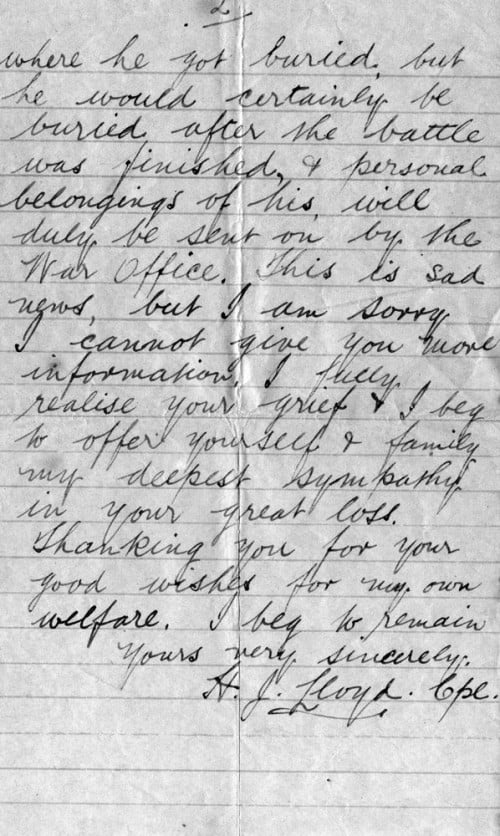 2
where he got buried, but
he would certainly be
buried after the battle
was finished, & personal
belongings of his will
duly be sent on by the
War Office. This is sad
news, but I am sorry
I cannot give you more
information. I fully
realise your grief & I beg
to offer yourself & family
my deepest sympathy
in your great loss.
Thanking you for your
good wishes for my own
welfare. I beg to remain
Yours very sincerely.
H. J. Lloyd. Cpl.